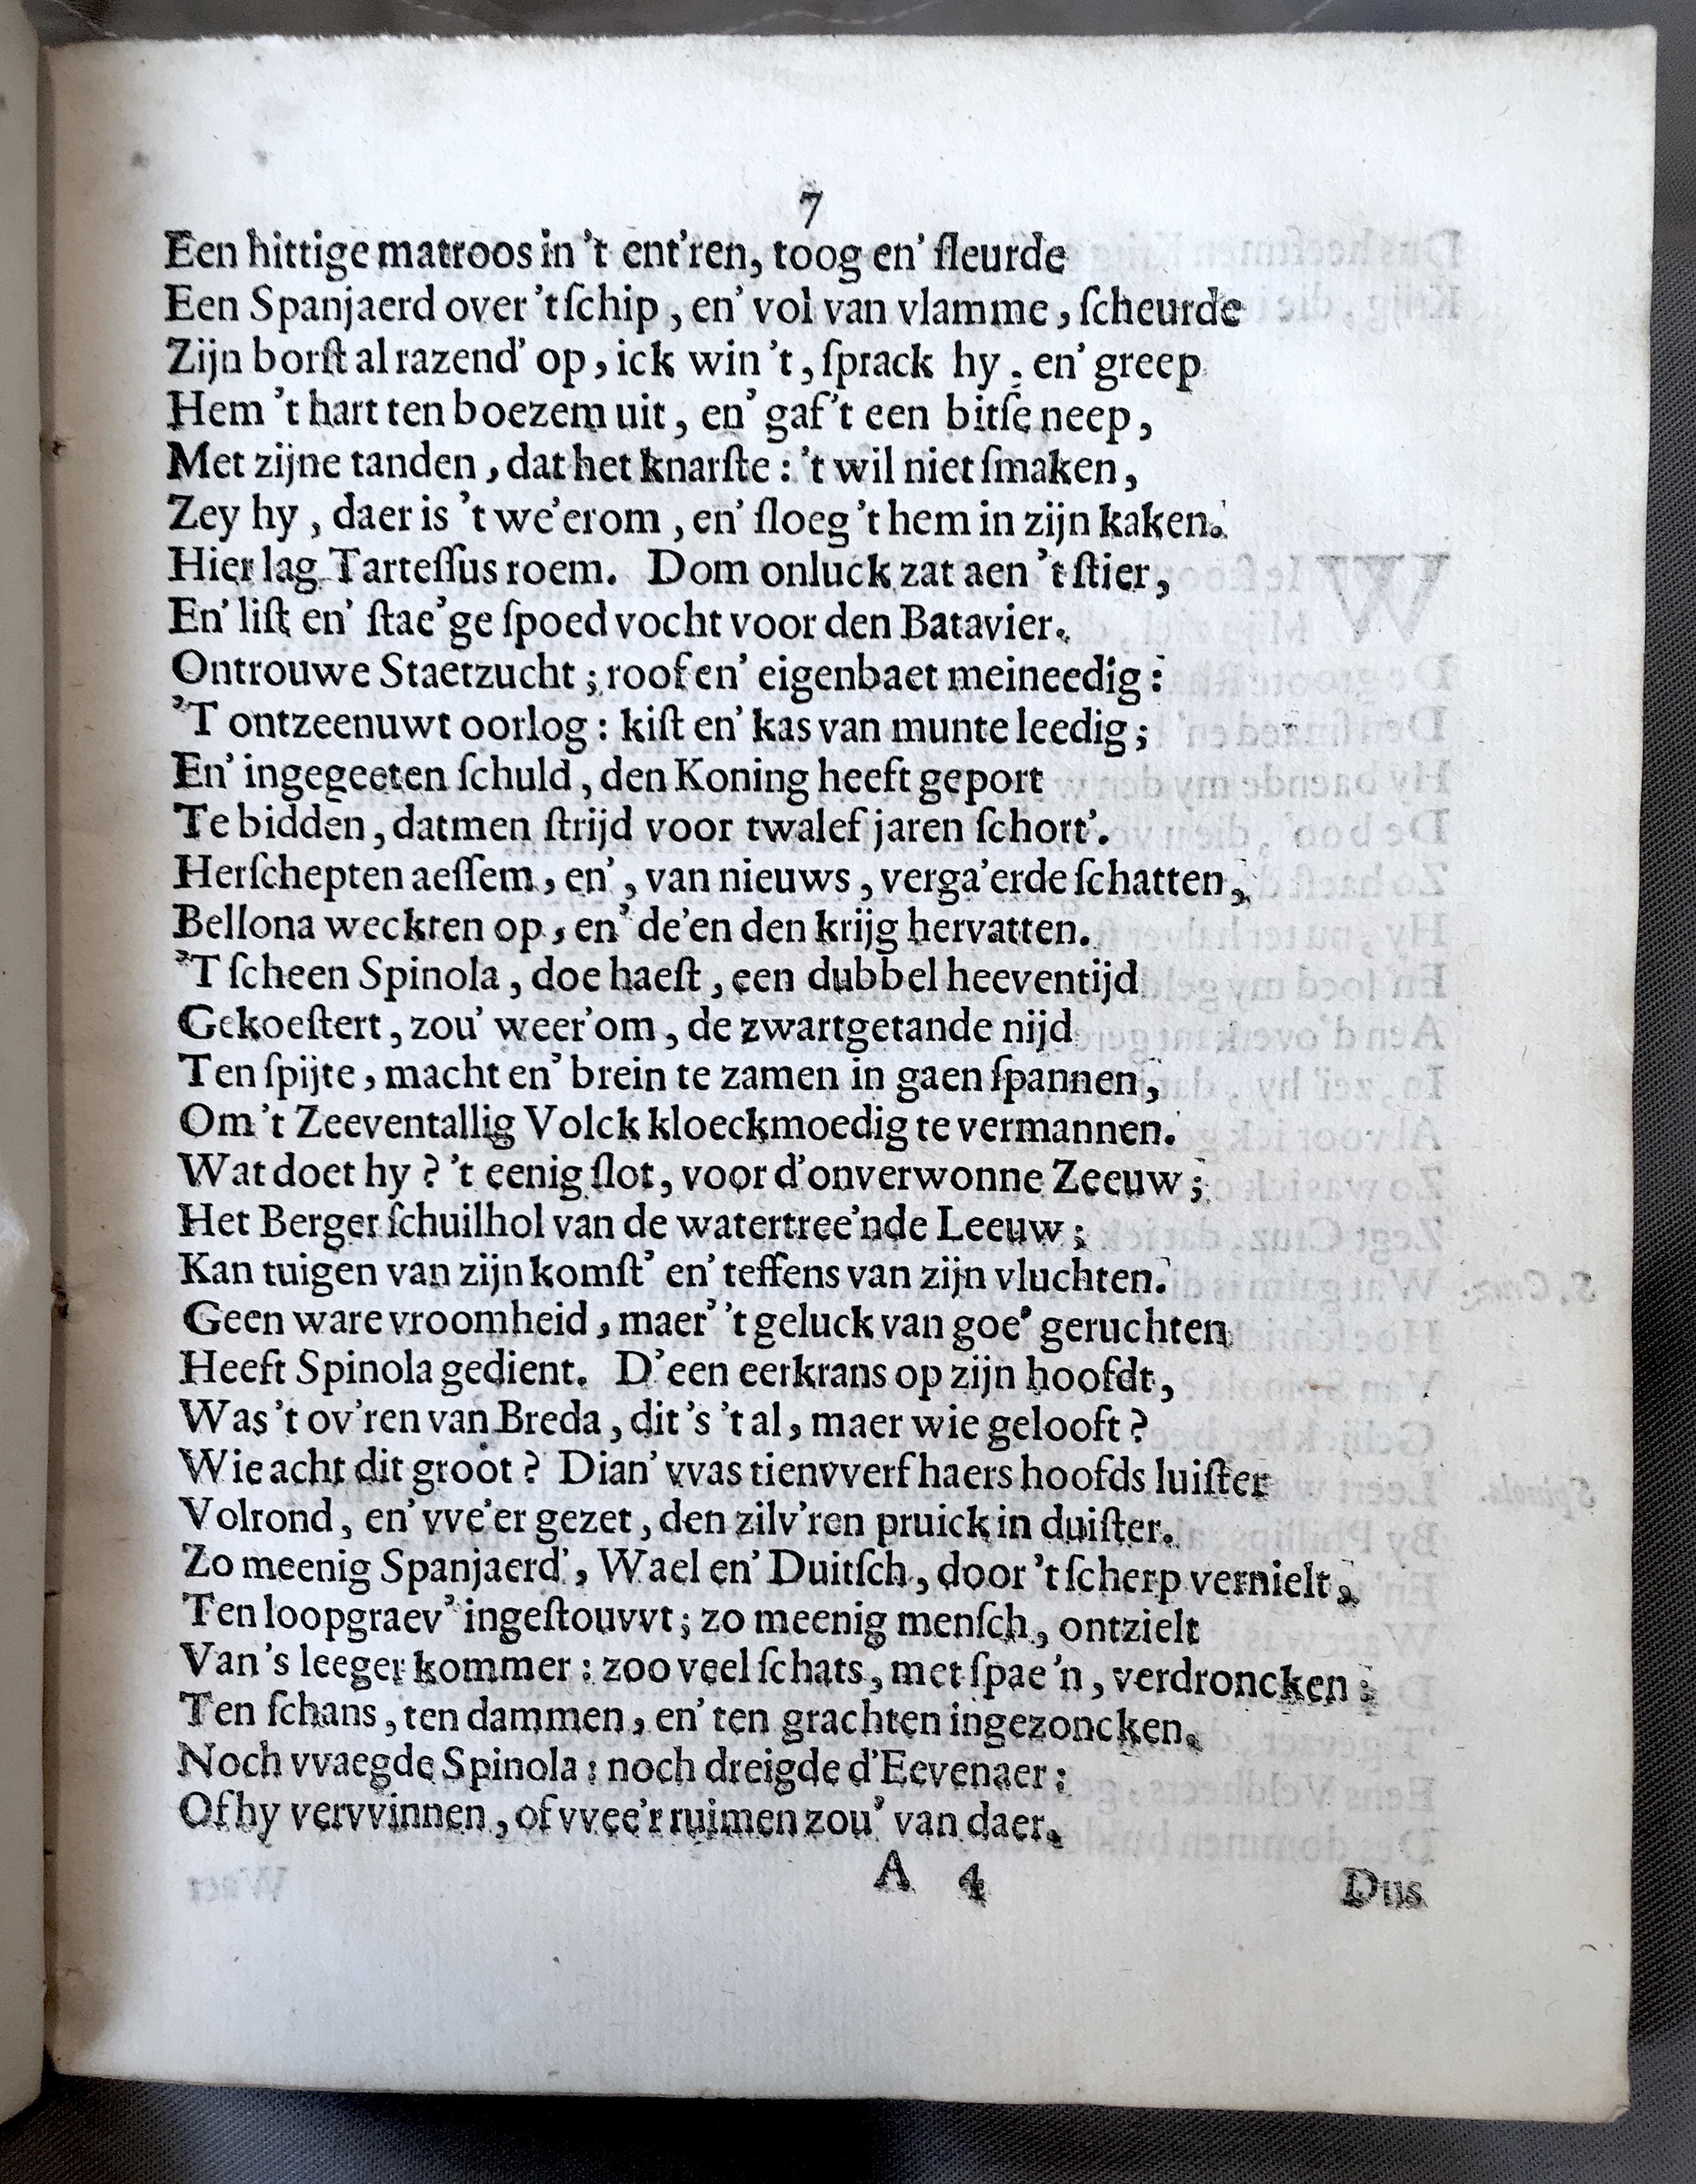 7
Een hittige matroos in 't ent'ren, toog en' ſleurde
Een Spanjaerd over 't ſchip, en' vol van vlamme, ſcheurde
Zijn borſt al razend' op, ick win 't, ſprack hy. en' greep
Hem 't hart ten boezem uit, en' gaf't een bitſe neep,
Met zijne tanden, dat het knarſte: 't wil niet ſmaken,
Zey hy, daer is 't we'erom, en' ſloeg 't hem in zijn kaken.
Hier lag Tarteſſus roem. Dom onluck zat aen 't ſtier,
En' liſt en' ſtae'ge ſpoed vocht voor den Batavier.
Ontrouwe Staetzucht; roof en' eigenbaet meineedig:
'T ontzeenuwt oorlog: kiſt en' kas van munte leedig;
En' ingegeeten ſchuld, den Koning heeft geport
Te bidden, datmen ſtrijd voor twalef jaren ſchort'.
Herſchepten aeſſem, en', van nieuws, verga'erde ſchatten,
Bellona weckten op, en' de'en den krijg hervatten.
'T ſcheen Spinola, doe haeſt, een dubbel heeventijd
Gekoeſtert, zou' weer'om, de zwartgetande nijd
Ten ſpijte, macht en' brein te zamen in gaen ſpannen,
Om 't Zeeventallig Volck kloeckmoedig te vermannen.
Wat doet hy? 't eenig ſlot, voor d'onverwonne Zeeuw;
Het Berger ſchuilhol van de watertree'nde Leeuw;
Kan tuigen van zijn komſt' en' teffens van zijn vluchten.
Geen ware vroomheid, maer' 't geluck van goe' geruchten
Heeft Spinola gedient. D'een eerkrans op zijn hoofdt,
Was 't ov'ren van Breda, dit 's 't al, maer wie gelooft?
Wie acht dit groot? Dian' vvas tienvverf haers hoofds luiſter
Volrond, en' vve'er gezet, den zilv'ren pruick in duiſter.
Zo meenig Spanjaerd', Wael en' Duitſch, door 't ſcherp vernielt,
Ten loopgraev' ingeſtouvvt; zo meenig menſch, ontzielt
Van 's leeger kommer: zoo veel ſchats, met ſpae'n, verdroncken;
Ten ſchans, ten dammen, en' ten grachten ingezoncken.
Noch vvaegde Spinola: noch dreigde d'Eevenaer:
Of hy vervvinnen, of vvee'r ruimen zou' van daer.
A 4
Dus